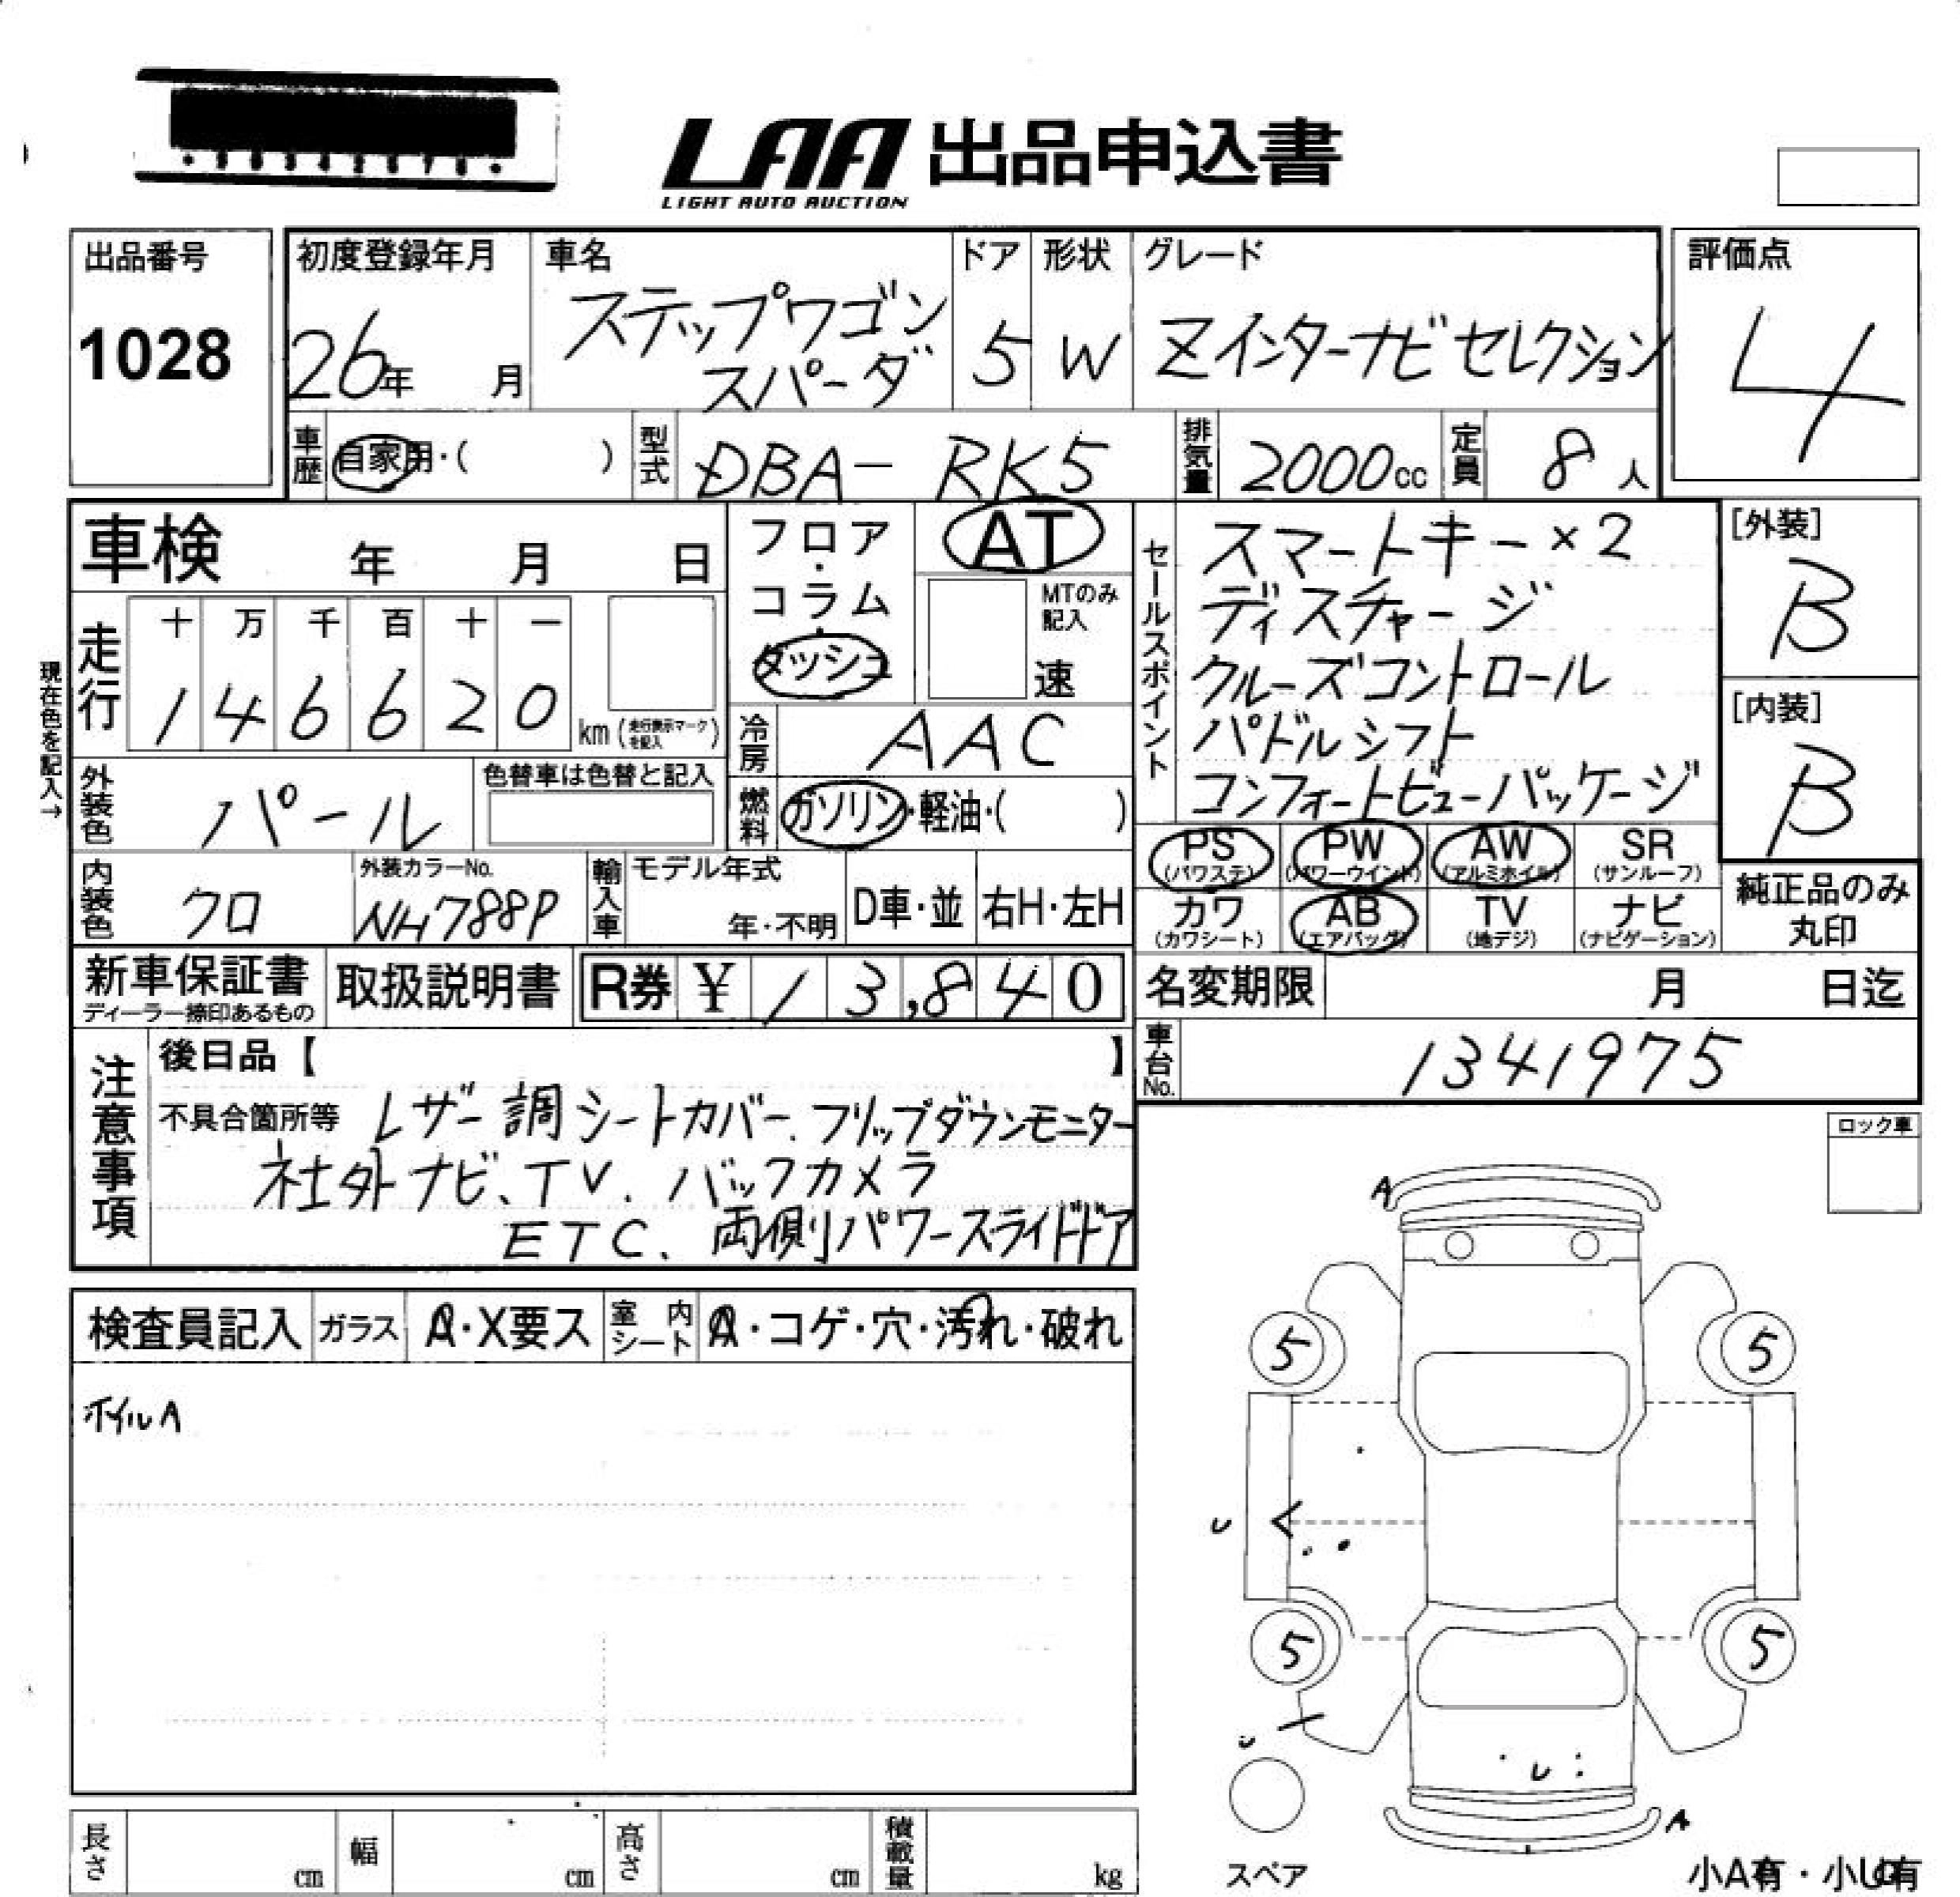 LAA 出品申込書
LIGHT AUTO AUCTION
出品番号
1028
初度登録年月
26年 月
車名
ステップワゴン
スパーダ
ドア
5
形状
W
グレード
Zインターナビセレクション
評価点
4
車歴 自家用・( )
型式 DBA-RK5
排気量 2000cc
定員 8人
車検 年 月 日
フロア・
コラム・
ダッシュ
AT
MTのみ
記入
速
セールスポイント
スマートキー×2
ディスチャージ
クルーズコントロール
パドルシフト
コンフォートビューパッケージ
[外装]
B
[内装]
B
現在色を記入→
走行
十 万 千 百 十 一
1 4 6 6 2 0 km (走行表示マークを記入)
冷房 AAC
外装色 パール
色替車は色替と記入
燃料 ガソリン・軽油・( )
PS (パワステ)
PW (パワーウインド)
AW (アルミホイル)
SR (サンルーフ)
カワ (カワシート)
AB (エアバッグ)
TV (地デジ)
ナビ (ナビゲーション)
純正品のみ
丸印
内装色 クロ
外装カラーNo.
NH788P
輸入車
モデル年式
年・不明
D車・並
右H・左H
新車保証書
ディーラー捺印あるもの
取扱説明書
R券 ¥ 13,840
名変期限 月 日迄
車台No. 1341975
注意事項
後日品【 】
不具合箇所等 レザー調シートカバー.フリップダウンモニター
社外ナビ、TV.バックカメラ
ETC、両側パワースライドドア
ロック車
検査員記入
ガラス A・X要ス
室内シート A・コゲ・穴・汚れ・破れ
ホイルA
A
5 5
U
5 5
U
U
A
スペア
小A有・小U有
長さ cm
幅 cm
高さ cm
積載量 kg